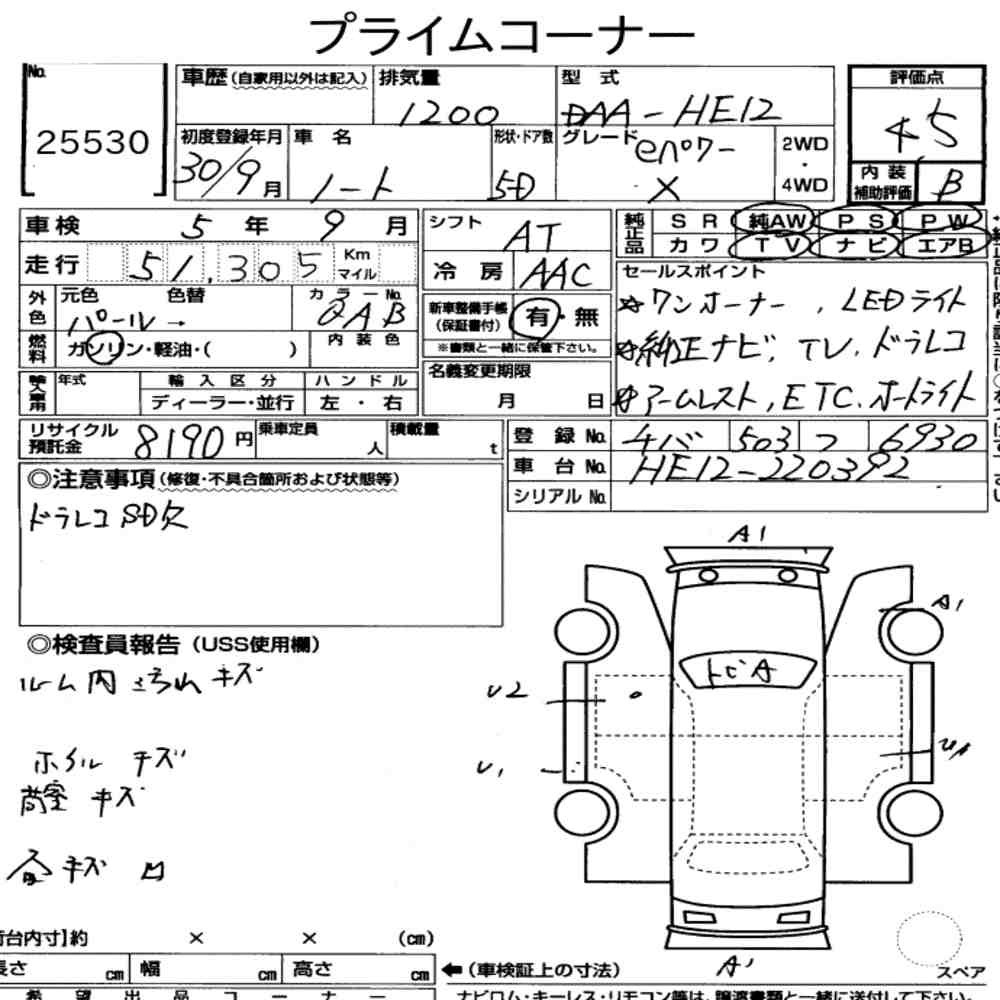 プライムコーナー
No.
25530
車歴(自家用以外は記入)
排気量
1200
型式
DAA-HE12
評価点
4 5
初度登録年月
30/9月
車名
ノート
形状・ドア数
5D
グレード
eパワー
X
2WD
・
4WD
内装
補助評価
B
車検 5年 9月
シフト
AT
純正品
SR 純AW PS PW
カワ TV ナビ エアB
走行 51,305 Km
マイル
冷房 AAC
セールスポイント
☆ワンオーナー, LEDライト
☆純正ナビ, TV, ドラレコ
☆アームレスト, ETC. オートライト
外色
元色 色替
パール→
カラーNo.
QAB
新車整備手帳
(保証書付)
有・無
※書類と一緒に保管下さい。
燃料
ガソリン・軽油・( )
内装色
名義変更期限
月 日
輸入車用
年式
輸入区分
ディーラー・並行
ハンドル
左・右
リサイクル
預託金
8190円
乗車定員
人
積載量
t
登録No. チバ 503 つ 6930
車台No. HE12-220392
シリアルNo.
◎注意事項(修復・不具合箇所および状態等)
ドラレコSD欠
◎検査員報告(USS使用欄)
ルーム内汚れ キズ
ホイル キズ
キズ
キズ 凹
A1
A1
トビA
U2
U1
A1
荷台内寸】約 × × (cm)
長さ cm 幅 cm 高さ cm
←(車検証上の寸法)
スペア
希望出品コーナー
ナビロム・キーレス・リモコン等は、譲渡書類と一緒に送付して下さい。